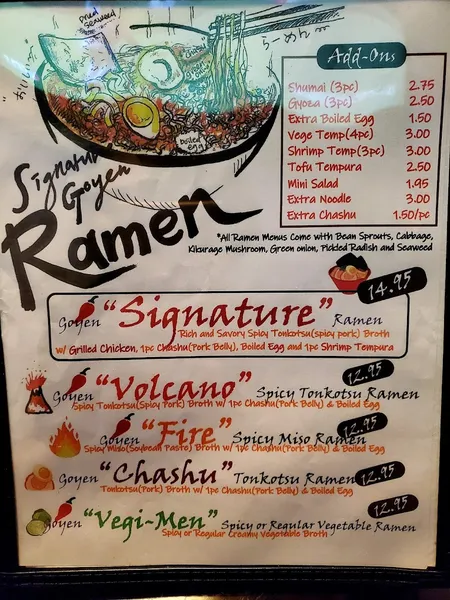 Dried
seaweed
らーめん
おいしい
boiled
egg
Signature
Goyen
Ramen
Add-Ons
Shumai (3pc) 2.75
Gyoza (3pc) 2.50
Extra Boiled Egg 1.50
Vege Temp(4pc) 3.00
Shrimp Temp(3pc) 3.00
Tofu Tempura 2.50
Mini Salad 1.95
Extra Noodle 3.00
Extra Chashu 1.50/pc
*All Ramen Menus Come with Bean Sprouts, Cabbage,
Kikurage Mushroom, Green onion, Pickled Radish and Seaweed
14.95
Goyen "Signature" Ramen
Rich and Savory Spicy Tonkotsu(spicy pork) Broth
w/ Grilled Chicken, 1pc Chashu(Pork Belly), Boiled Egg and 1pc Shrimp Tempura
12.95
Goyen "Volcano" Spicy Tonkotsu Ramen
Spicy Tonkotsu(Spicy Pork) Broth w/ 1pc Chashu(Pork Belly) & Boiled Egg
12.95
Goyen "Fire" Spicy Miso Ramen
Spicy Miso(Soybean Paste) Broth w/ 1pc Chashu(Pork Belly) & Boiled Egg
12.95
Goyen "Chashu" Tonkotsu Ramen
Tonkotsu(Pork) Broth w/ 1pc Chashu(Pork Belly) & Boiled Egg
12.95
Goyen "Vegi-Men" Spicy or Regular Vegetable Ramen
Spicy or Regular Creamy Vegetable Broth